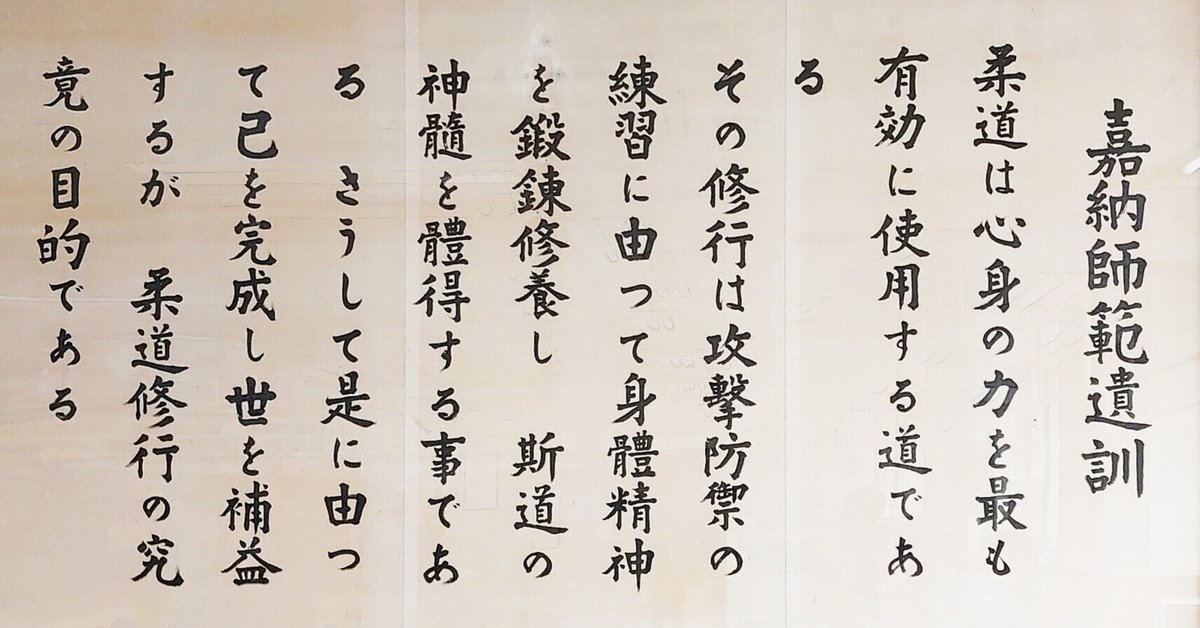 嘉納師範遺訓
柔道は心身の力を最も
有効に使用する道であ
る
その修行は攻擊防禦の
練習に由つて身體精神
を鍛錬修養し　斯道の
神髓を體得する事であ
る　さうして是に由つ
て己を完成し世を補益
するが　柔道修行の究
竟の目的である